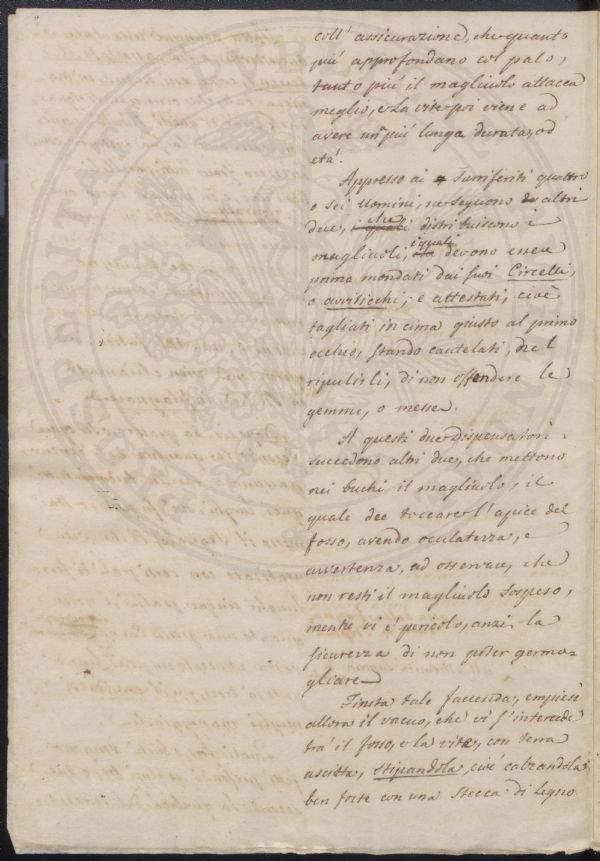 coll' assicurazione, che quanto
più approfondano col palo,
tanto più il magliuolo attacca
meglio, e la vite poi viene ad
avere un più lunga durata, od
età.
Appresso ai surriferiti quattro
o sei Uomini, ne seguono altri
due, che distribuiscono i
magliuoli, i quali devono essere
prima mondati dai suoi Circelli,
o avviticchi, e attestati, cioè
tagliati in cima giusto al primo
occhio, stando cautelati, nel
ripulirli, di non offendere le
gemme, o messe.
A questi due dispensatori
succedono altri due, che mettono
nei buchi il magliuolo, il
quale dee toccare l'apice del
fosso, avendo oculatezza, e
avvertenza, ad osservare, che
non resti il magliuolo sospeso,
mentre vi è pericolo, anzi la
sicurezza di non poter germo=
gliare.
Finita tale faccenda, empiesi
allora il vacuo, che vi s'intercede
trà il fosso, e la vite, con terra
asciutta, stipandola, cioè calzandola
ben forte con una stecca di legno